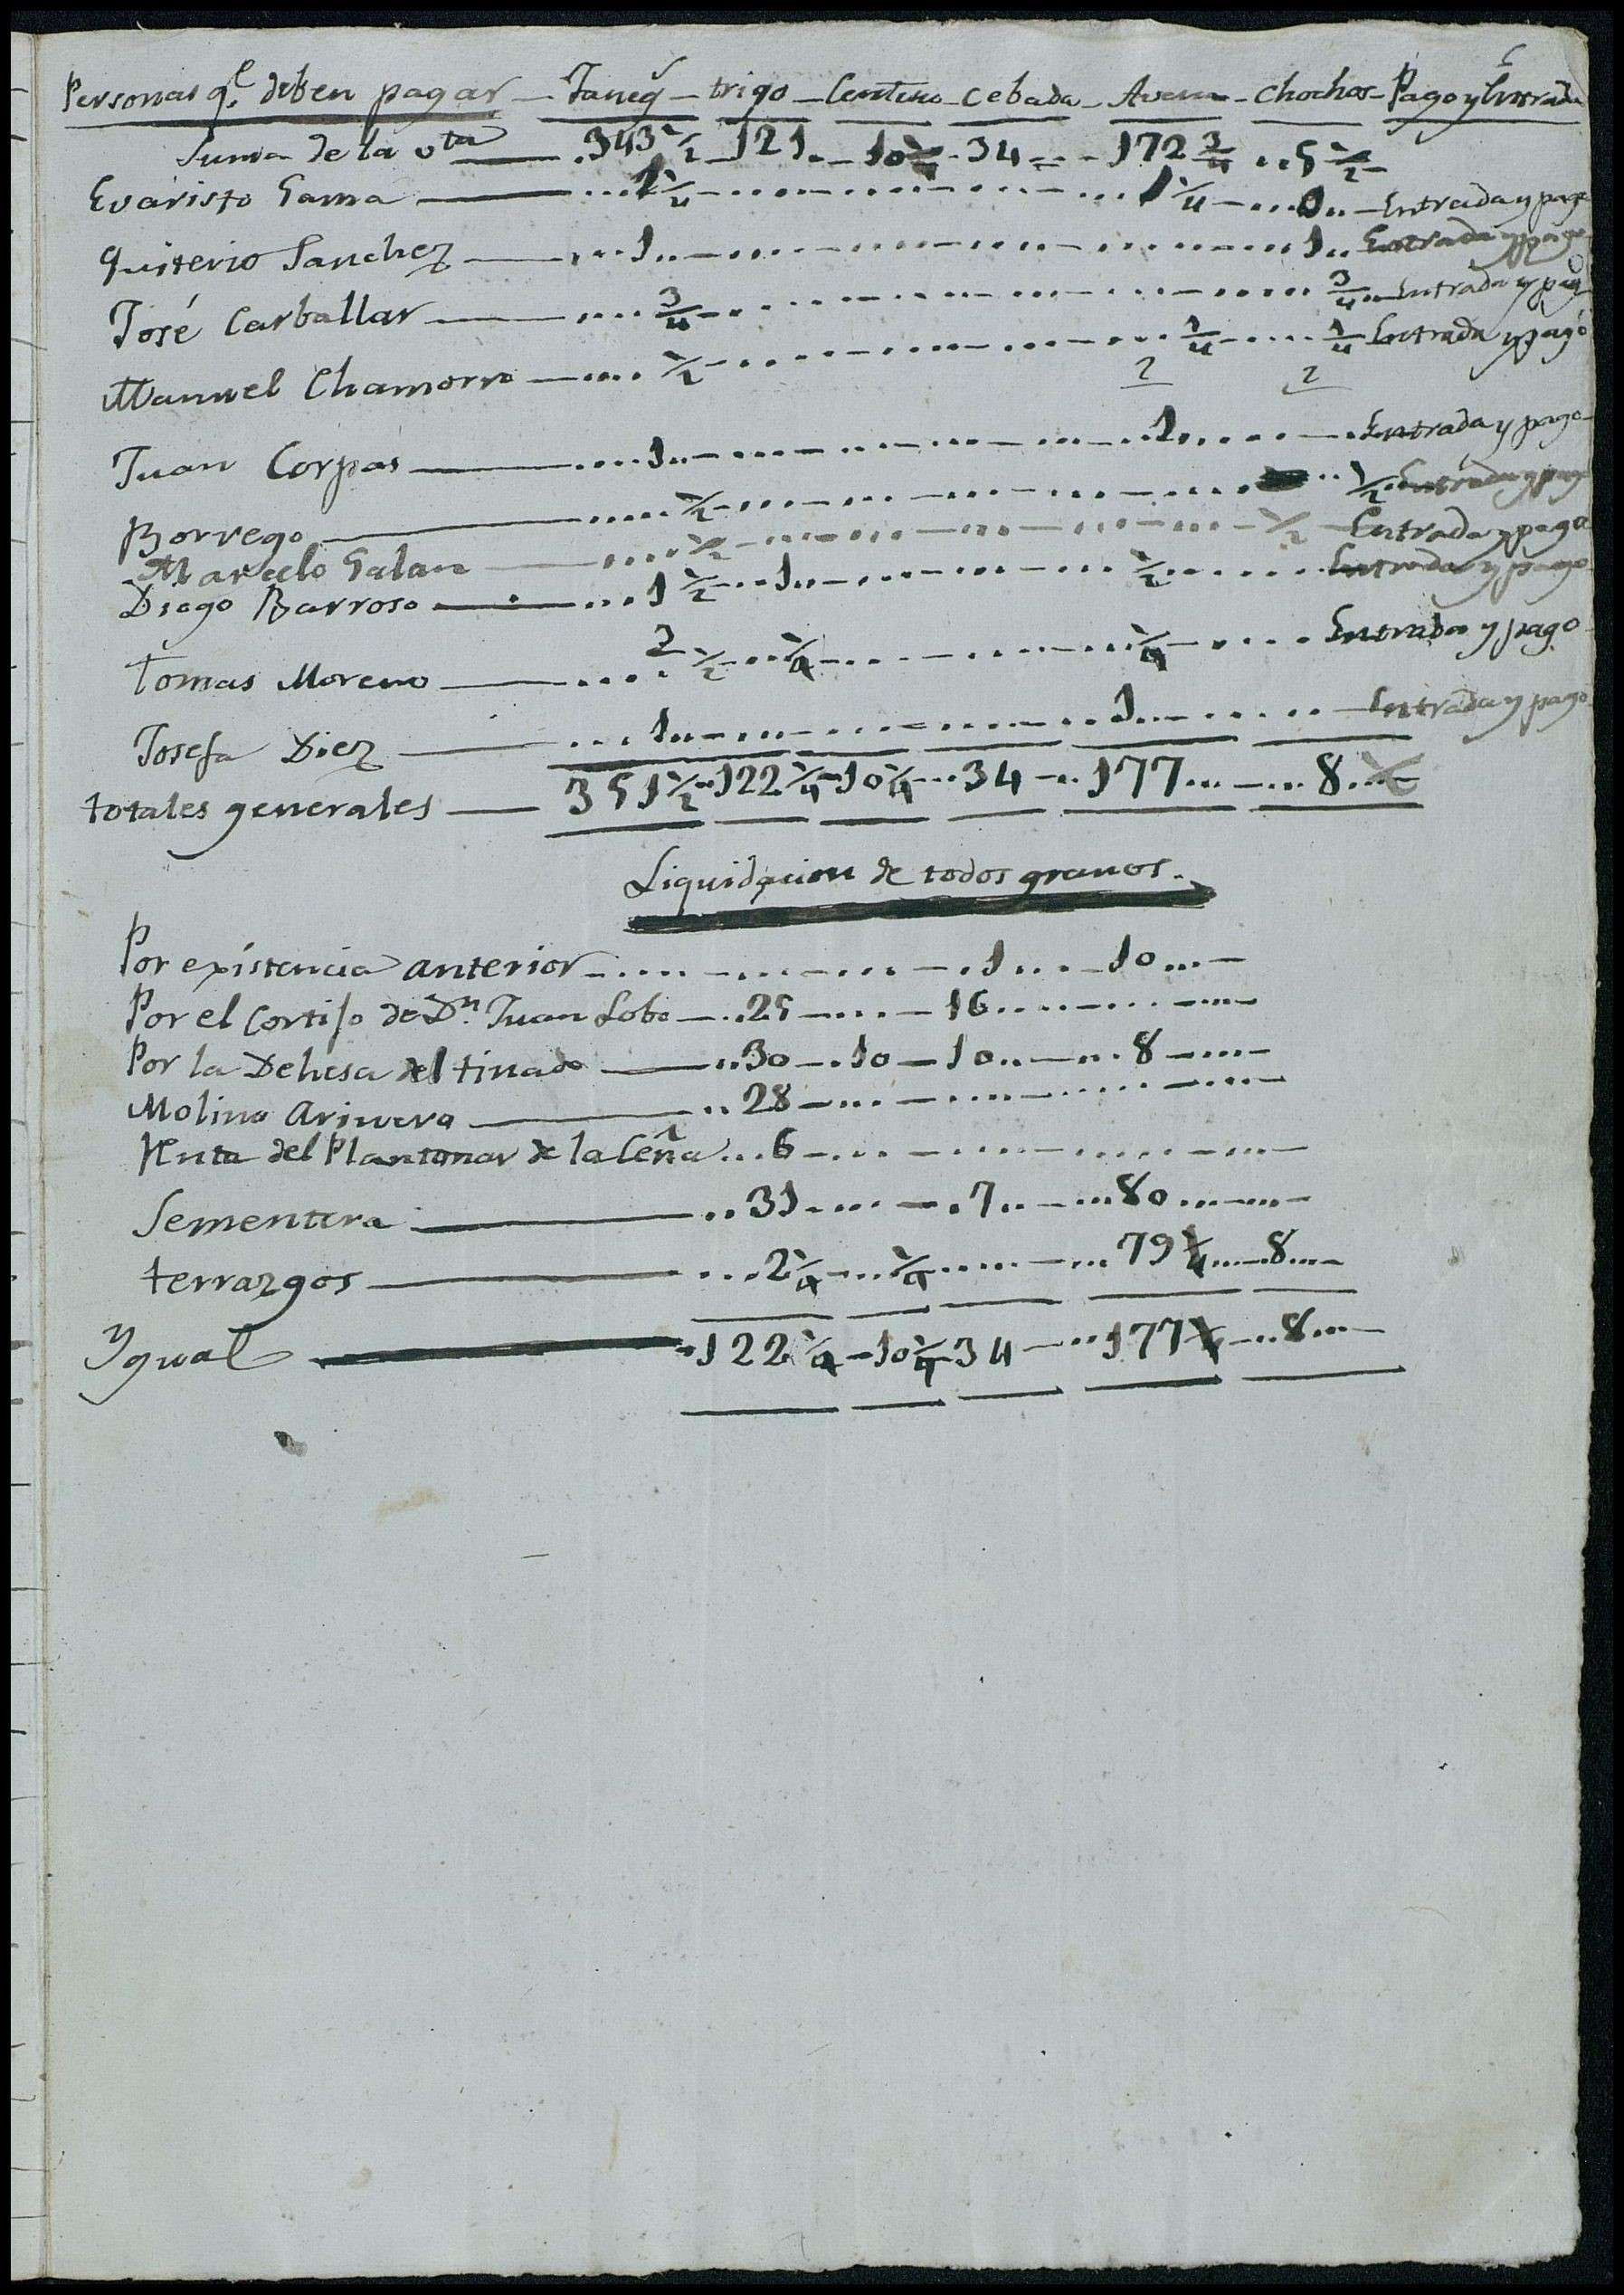 Personas q.e deben pagar - Faneg.s - trigo - Centeno - Cebada - Avena - Chochos - Pago y Entrada
Suma de la v.ta 343 1/2 121 10 1/4 34 172 3/4 5 1/2
Evaristo Gama 1 1/4 1 1/4 0 Entrada y pago
Quiterio Sanchez 1 1 Entrada y pago
José Carballar 3/4 3/4 Entrada y pag
Manuel Chamorro 1/2 1/4 1/4 Entrada y pagó
2 2
Juan Corpas 1 1 Entrada y pago
Borrego 1/2 1/2 Entrada y pago
Marcelo Galan 1/2 1/2 Entrada y pago
Diego Barroso 1 1/2 1 1/2 Entrada y pago
Tomas Moreno 1/2 1/4 1/4 Entrada y pago
Josefa Diez 1 1 Entrada y pago
totales generales 351 1/2 122 1/4 10 1/4 34 177 8
Liquidacion de todos granos.
Por existencia anterior 1 10
Por el Cortijo de D.n Juan Lobo 25 16
Por la Dehesa del tinado 30 10 10 8
Molino Arinero 28
Renta del Plantonar de la Ceña 6
Sementera 31 7 80
terrazgos 2 1/4 1/4 79 1/4 8
Ygual 122 1/4 10 1/4 34 177 8